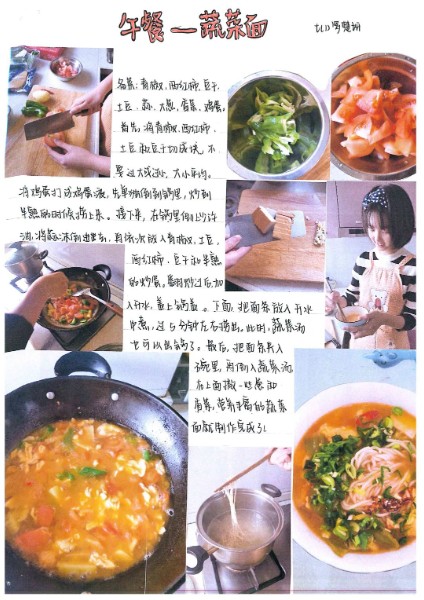 午餐—蔬菜面
备菜：青椒、西红柿、豆干、
土豆、蒜、大葱、香葱、鸡蛋。
首先，将青椒、西红柿、
土豆和豆干切成块，不
要过大或过小，大小平均。
将鸡蛋打成鸡蛋液，先单独倒到锅里，炒到
半熟的时候捞上来。接下来，在锅里倒上少许
油，将蒜、
西红柿、豆干和半熟
的炒蛋。翻炒过后，加
入开水，盖上锅盖。下面，把面条放入开水
中煮，过5分钟左右捞出。此时，蔬菜汤
也可以出锅了。最后，把面条弄入
碗里，再倒入蔬菜汤，
在上面撒一些葱和
香菜，营养丰富的蔬菜
面就制作完成了！